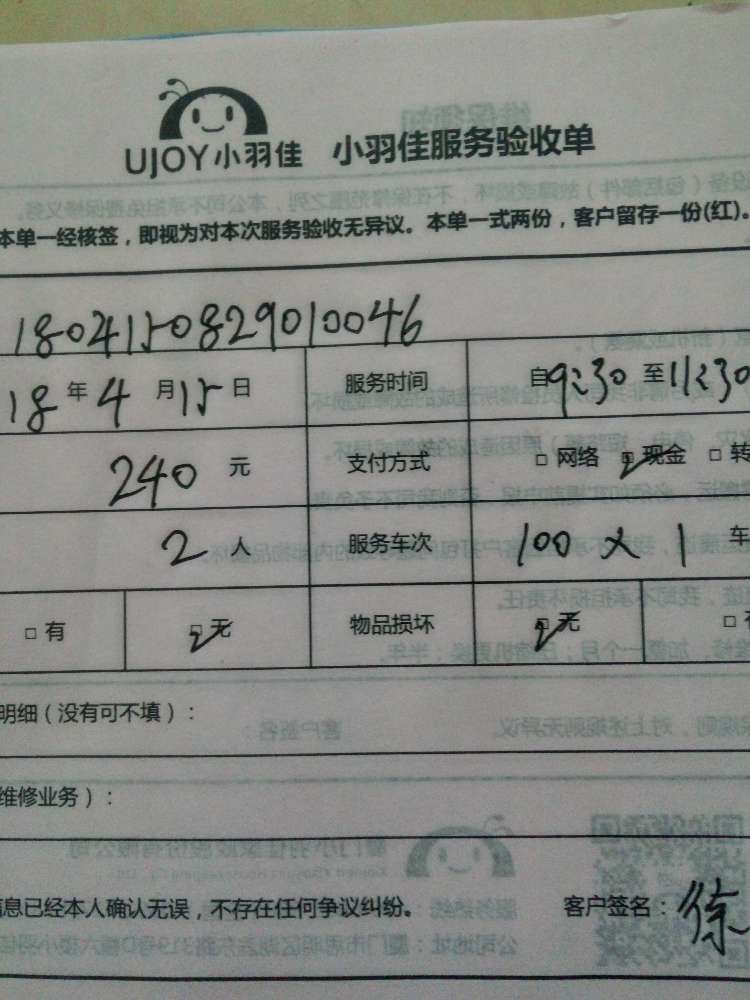 UJOY小羽佳 小羽佳服务验收单
本单一经核签，即视为对本次服务验收无异议。本单一式两份，客户留存一份(红)。
1804150829010046
18年4月15日 服务时间 自9:30至11:30
240元 支付方式 □ 网络 □ 现金 □ 转
2人 服务车次 100 × 1 车
□ 有 □ 无 物品损坏 □ 无 □
明细（没有可不填）：
维修业务）：
信息已经本人确认无误，不存在任何争议纠纷。 客户签名：徐